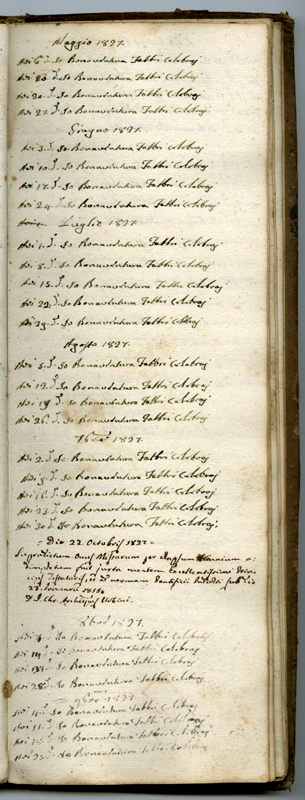 Maggio 1827.
Adi 6 d.º Io Bonaventura Fabbri Celebraj
Adi 13. d.º Io Bonaventura Fabbri Celebraj
Adi 20. d.º Io Bonaventura Fabbri Celebraj
Adi 27. d.º Io Bonaventura Fabbri Celebraj
Giugno 1827.
Adi 3. d.º Io Bonaventura Fabbri Celebraj
Adi 10. d.º Io Bonaventura Fabbri Celebraj
Adi 17. d.º Io Bonaventura Fabbri Celebraj
Adi 24. d.º Io Bonaventura Fabbri Celebraj
Luglio 1827.
Adi 1. d.º Io Bonaventura Fabbri Celebraj
Adi 8. d.º Io Bonaventura Fabbri Celebraj
Adi 15. d.º Io Bonaventura Fabbri Celebraj
Adi 22. d.º Io Bonaventura Fabbri Celebraj
Adi 29. d.º Io Bonaventura Fabbri Celebraj
Agosto 1827.
Adi 5. d.º Io Bonaventura Fabbri Celebraj
Adi 12. d.º Io Bonaventura Fabbri Celebraj
Adi 19. d.º Io Bonaventura Fabbri Celebraj
Adi 26. d.º Io Bonaventura Fabbri Celebraj
7bre 1827.
Adi 2. d.º Io Bonaventura Fabbri Celebraj
Adi 9. d.º Io Bonaventura Fabbri Celebraj
Adi 16. d.º Io Bonaventura Fabbri Celebraj
Adi 23. d.º Io Bonaventura Fabbri Celebraj
Adi 30. d.º Io Bonaventura Fabbri Celebraj
= Die 22. Octobris 1827 =
Missarum per
fuit juxta mentem Excellentissimi
Testatoris, et ad normam Pontificii
22 Januarii 1815.
8bre 1827.
Adi 7. d.º Io Bonaventura Fabbri Celebraj
Adi 14. d.º Io Bonaventura Fabbri Celebraj
Adi 21. d.º Io Bonaventura Fabbri Celebraj
Adi 28. d.º Io Bonaventura Fabbri Celebraj
9bre 1827.
Adi 4. d.º Io Bonaventura Fabbri Celebraj
Adi 11. d.º Io Bonaventura Fabbri Celebraj
Adi 18. d.º Io Bonaventura Fabbri Celebraj
Adi 25. d.º Io Bonaventura Fabbri Celebraj